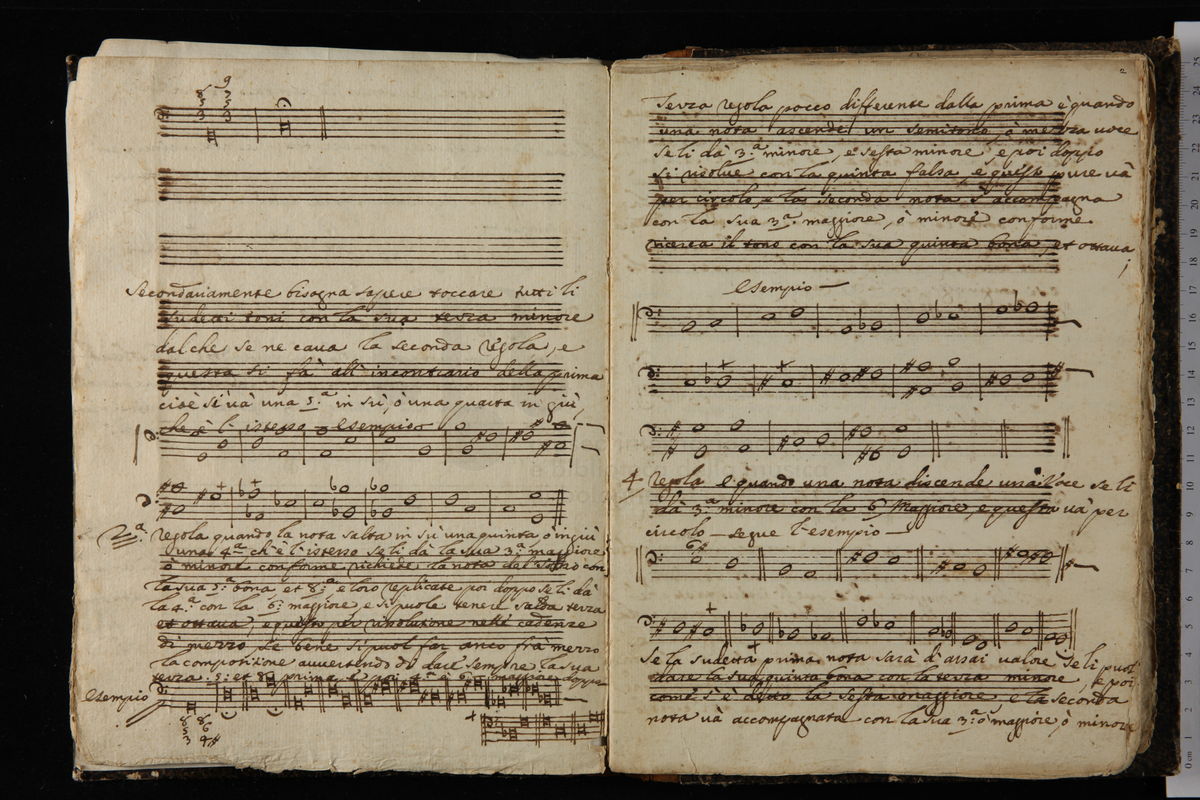 9
8 7
5 5
3 3
Secondariamente bisogna sapere toccare tutti li
sudetti toni con la sua terza minore
dal che se ne cava la seconda regola, e
questa si fà all'incontrario della prima
cioè si và una 5.ª in sù, ò una quarta in giù,
che è l'istesso esempio
2.ª regola quando la nota salta in sù una quinta ò in giù
una 4.ª ch'è l'istesso se li dà la sua 3.ª maggiore
ò minore conforme richiede la nota del tono con
la sua 5.ª bona et 8.ª e loro replicate poi doppo se li dà
la 4.ª con la 6.ª maggiore e si puole tenere salda terza
et ottava, e questo per risolutione nelle cadenze
di mezzo se bene si puol far anco frà mezzo
la compositione avvertendo di darli sempre la sua
terza: 5: et 8.ª prima, e poi 4.ª e 6.ª maggiore doppo
esempio
8 8
5 6
3 4#
2
Terza regola pocco differente dalla prima è quando
una nota ascende un semitono, ò mezza voce
se li dà 3.ª minore, e sesta minore, e poi doppo
si risolve con la quinta falsa, e questo pure và
per circolo, e la seconda nota s'accompagna
con la sua 3.ª maggiore, ò minore conforme
ricerca il tono con la sua quinta bona, et ottava
esempio
4 regola è quando una nota discende una voce se li
dà 3.ª minore con la 6.ª Maggiore, e questa và per
circolo segue l'esempio
6#
Se la sudetta prima nota sarà d'assai valore se li puol
dare la sua quinta bona con la terza minore, e poi
come si è detto la sesta maggiore e la seconda
nota và accompagnata con la sua 3.ª ò maggiore, ò minore
25
24
23
22
21
20
19
18
17
16
15
14
13
12
11
10
9
8
7
6
5
4
3
2
1
0 cm